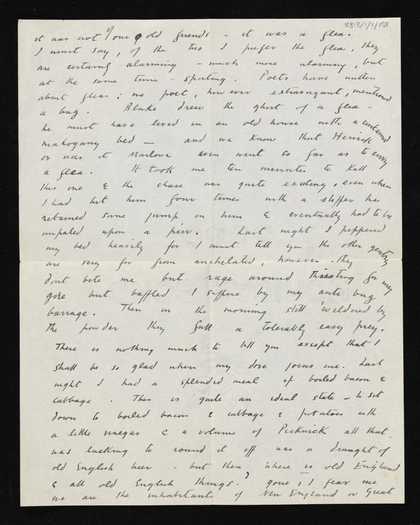 it was not one of our old friends - it was a flea.
I must say, of the two I prefer the flea, they
are certainly alarming - much more alarming, but
at the same time - sporting. Poets have written
about fleas; no poet, however extravagant, mentioned
a bug. Blake drew the ghost of a flea -
he must have lived in an old house with a
mahogany bed — and we know that Herrick
or was it Marlowe even went so far as to envy
a flea. It took me ten minutes to kill
this one & the chase was quite exciting, even when
I had hit him four times with a slipper he
retained some jump in him & eventually had to be
impaled upon a pin. Last night I peppered
my bed heavily for I must tell you the other gentry
are very far from annihilated, however they
dont bite me but rage around thirsting for my
gore but baffled I suppose by my anti bug
barrage. Then in the morning still by
the powder they fall a tolerably easy prey.
There is nothing much to tell you except that I
shall be so glad when my dose joins me. Last
night I had a splendid meal of boiled bacon &
cabbage. This is quite an ideal state - to sit
down to boiled bacon & cabbage & potatoes with
a little vinegar & a volume of Pickwick all that
was lacking to round it off was a draught of
old English beer - but then where is old England
& all old English things? gone, I fear me
we are the inhabitants of New England or Great